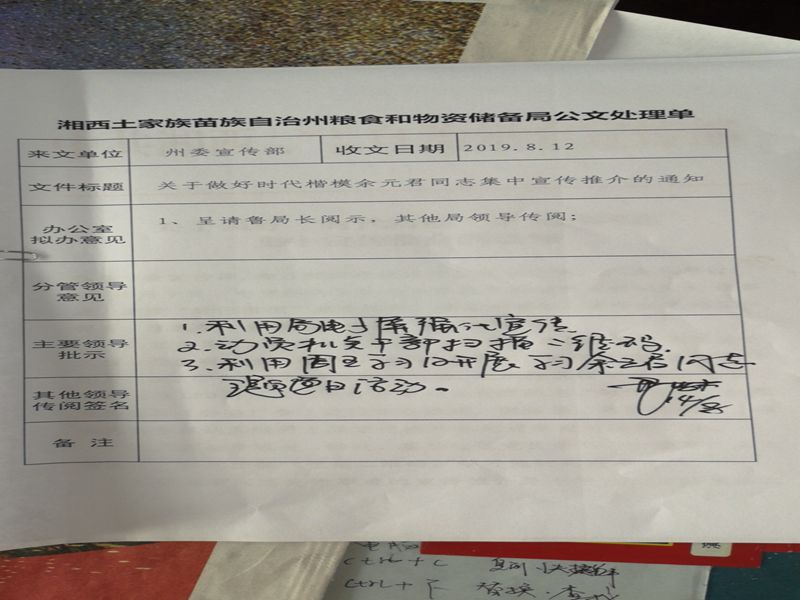 湘西土家族苗族自治州粮食和物资储备局公文处理单
来文单位 州委宣传部 收文日期 2019.8.12
文件标题 关于做好时代楷模余元君同志集中宣传推介的通知
办公室
拟办意见
1、呈请鲁局长阅示，其他局领导传阅；
分管领导
意见
主要领导
批示
1.利用局电子屏播放宣传
2.动员机关干部扫描二维码.
3.利用周五学习日开展学习余元君同志
主题党日活动。
其他领导
传阅签名
备 注
电脑
Ctrl + C 复制 快捷
Ctrl + F 替换.查找